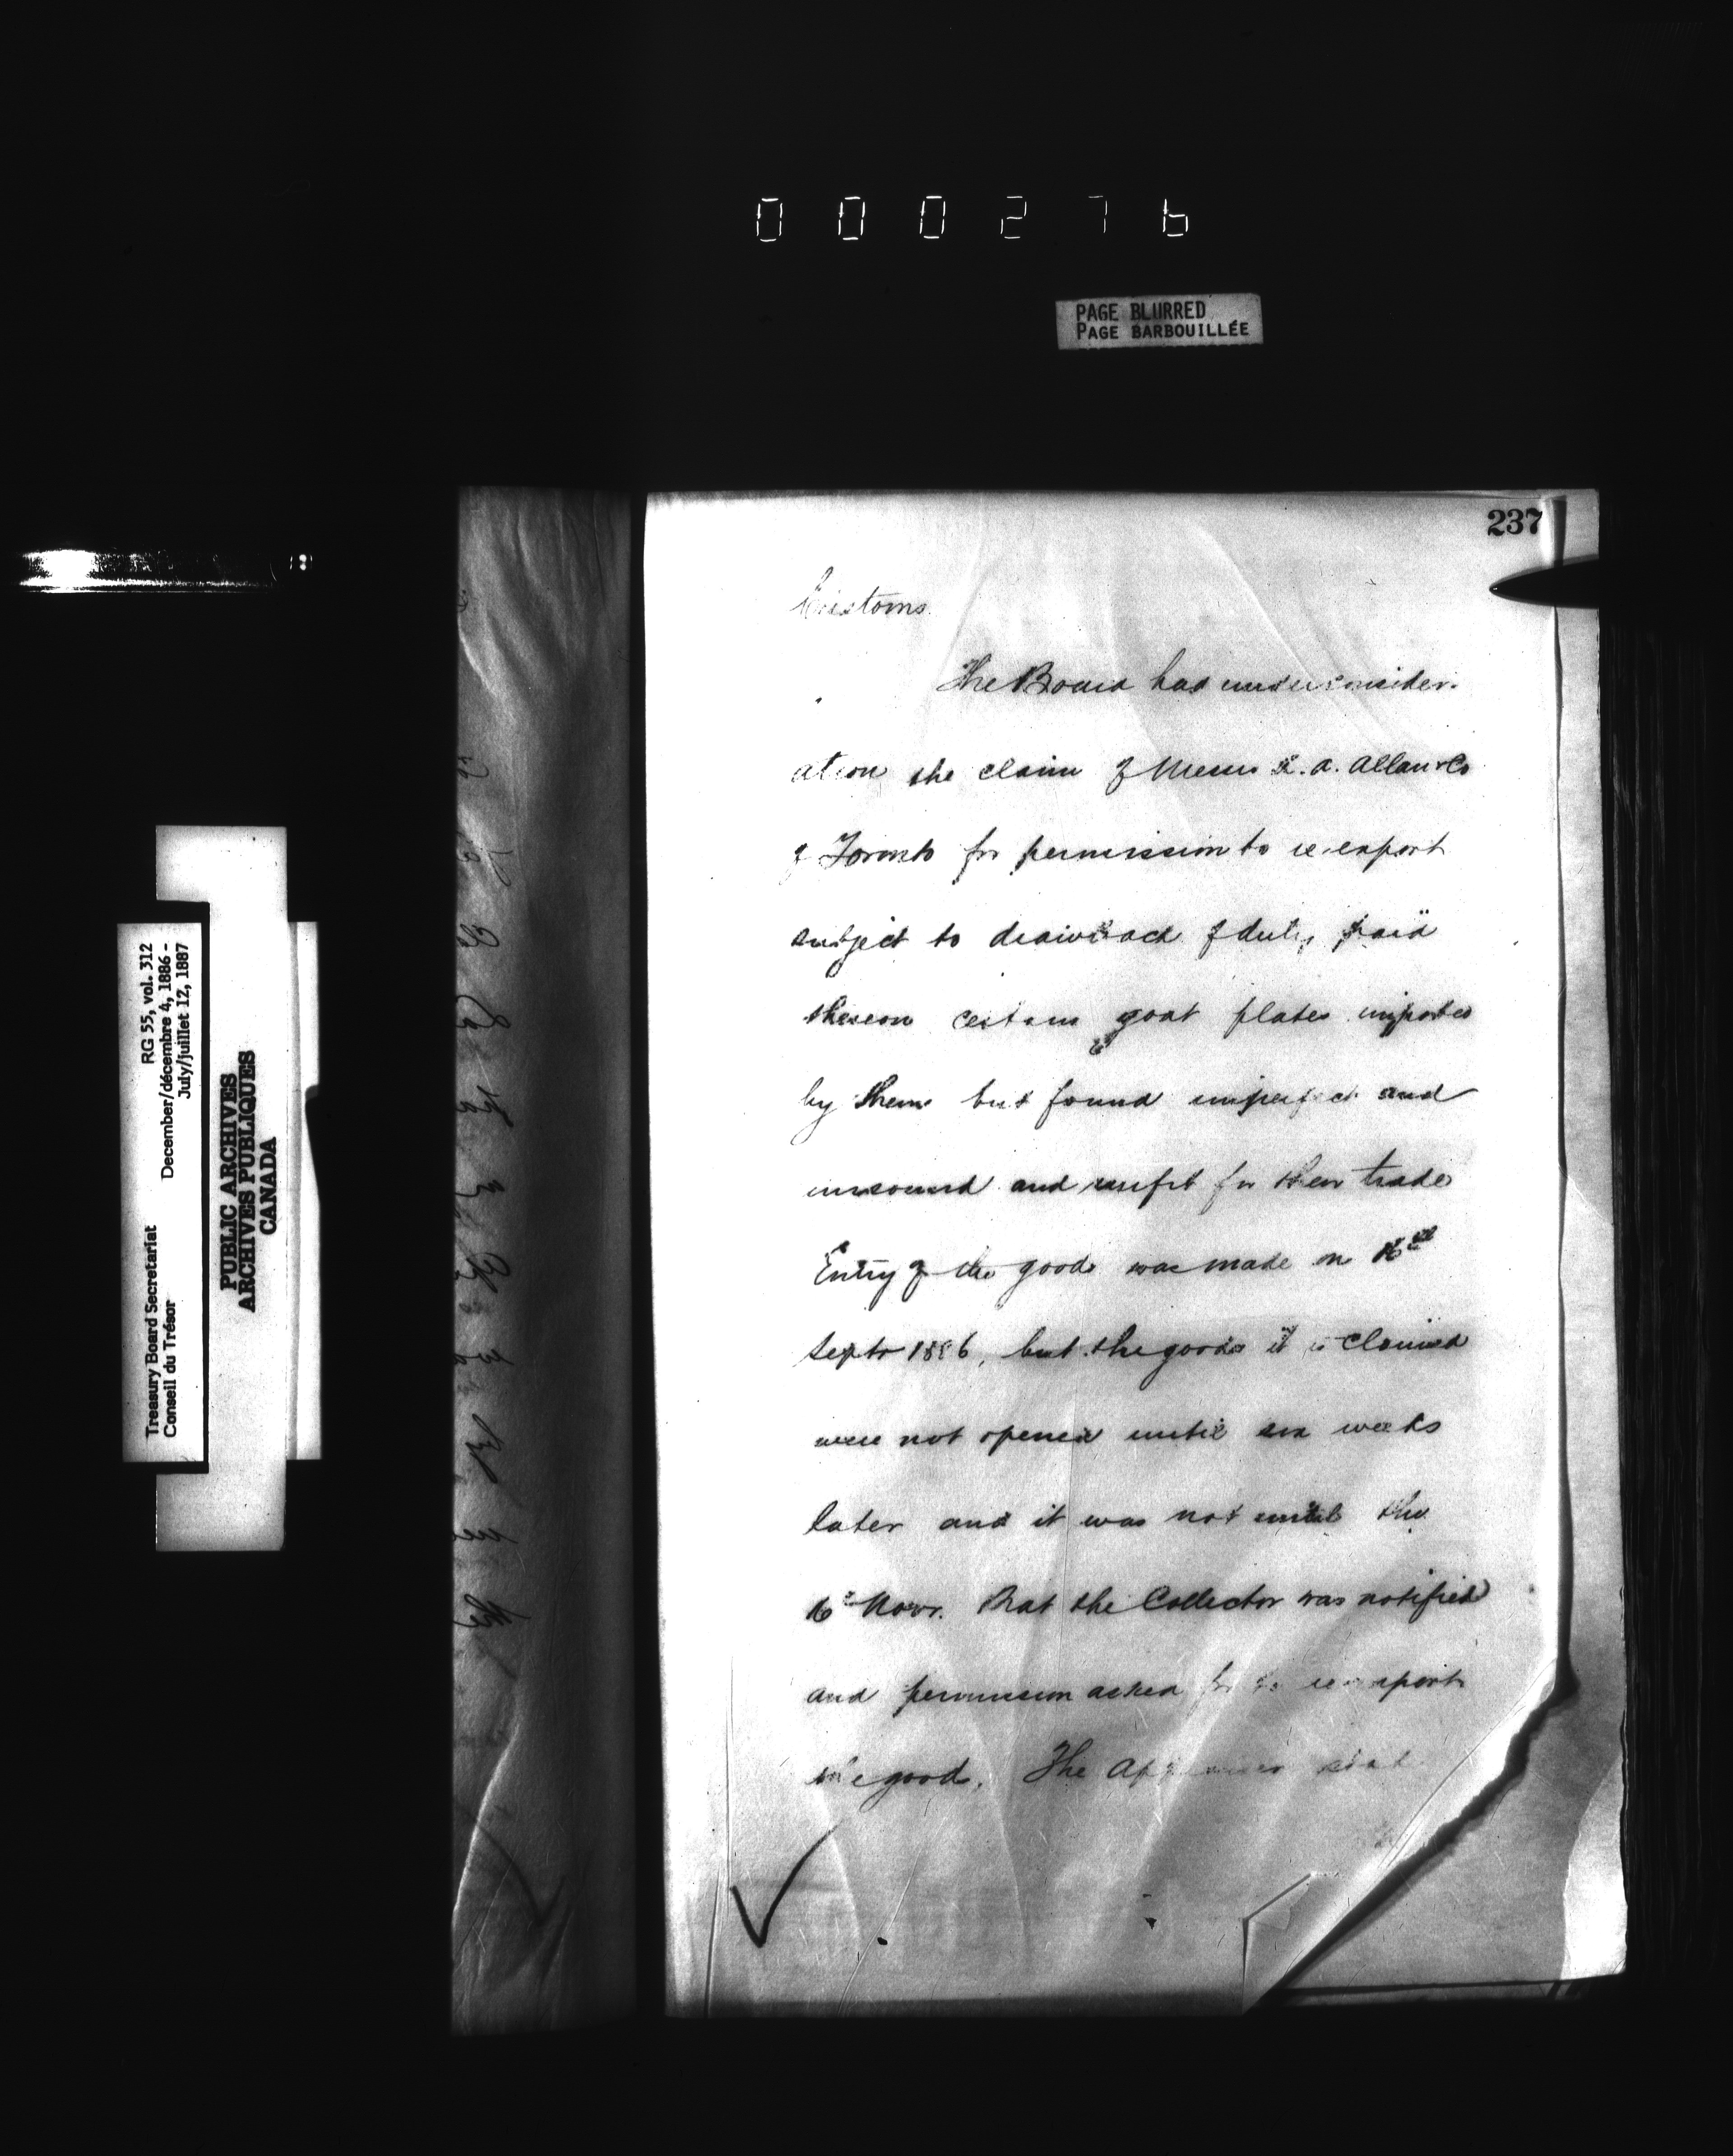 000276
PAGE BLURRED
PAGE BARBOUILLÉE
Treasury Board Secretariat RG 55, vol. 312
Conseil du Trésor December/décembre 4, 1886 -
July/juillet 12, 1887
PUBLIC ARCHIVES
ARCHIVES PUBLIQUES
CANADA
237
Customs.
The Board had under consider-
ation the claim of Messrs A. Allan & Co
of Toronto for permission to re-export
subject to drawback of duty paid
thereon certain goat plates imported
by them but found imperfect and
unsound and unfit for their trade
Entry of the goods was made on 16th
Septr 1886, but the goods it is claimed
were not opened until six weeks
later and it was not until the
16 Novr. that the Collector was notified
and permission asked for to re-export
the goods. The Appraiser